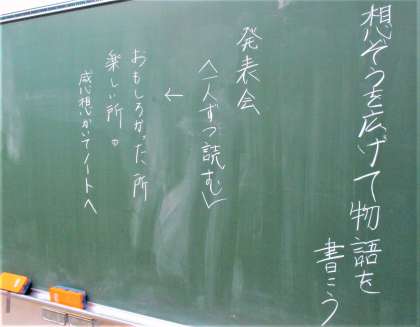 想ぞうを広げて物語を
書こう
発表会
〈一人ずつ読む〉
↓
おもしろかった所
楽しい所。
感想かいてノートへ